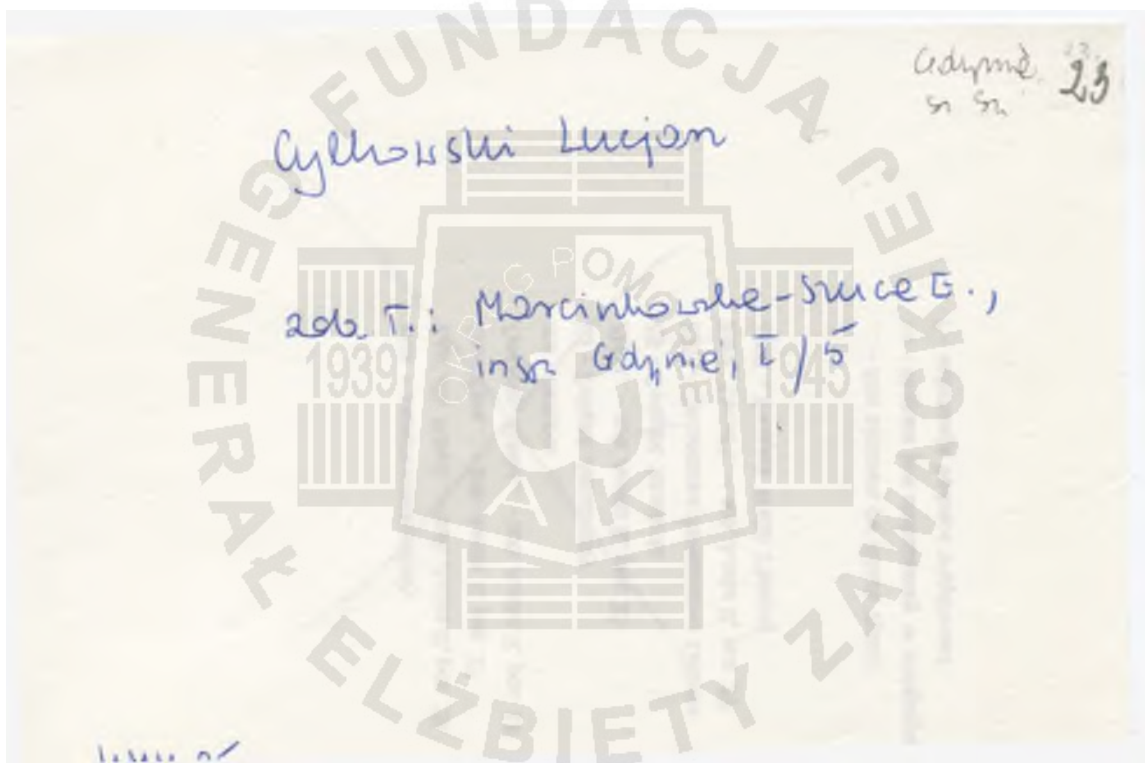 Gdynia 23
Sz. Sz.
Cylkowski Lucjan
zob. T.: Marcinkowska-Szuca E.,
insp. Gdynia, I/5
FUNDACJA
GENERAŁ ELŻBIETY ZAWACKIEJ
OKRĘG POMORZE
1939 1945
AK